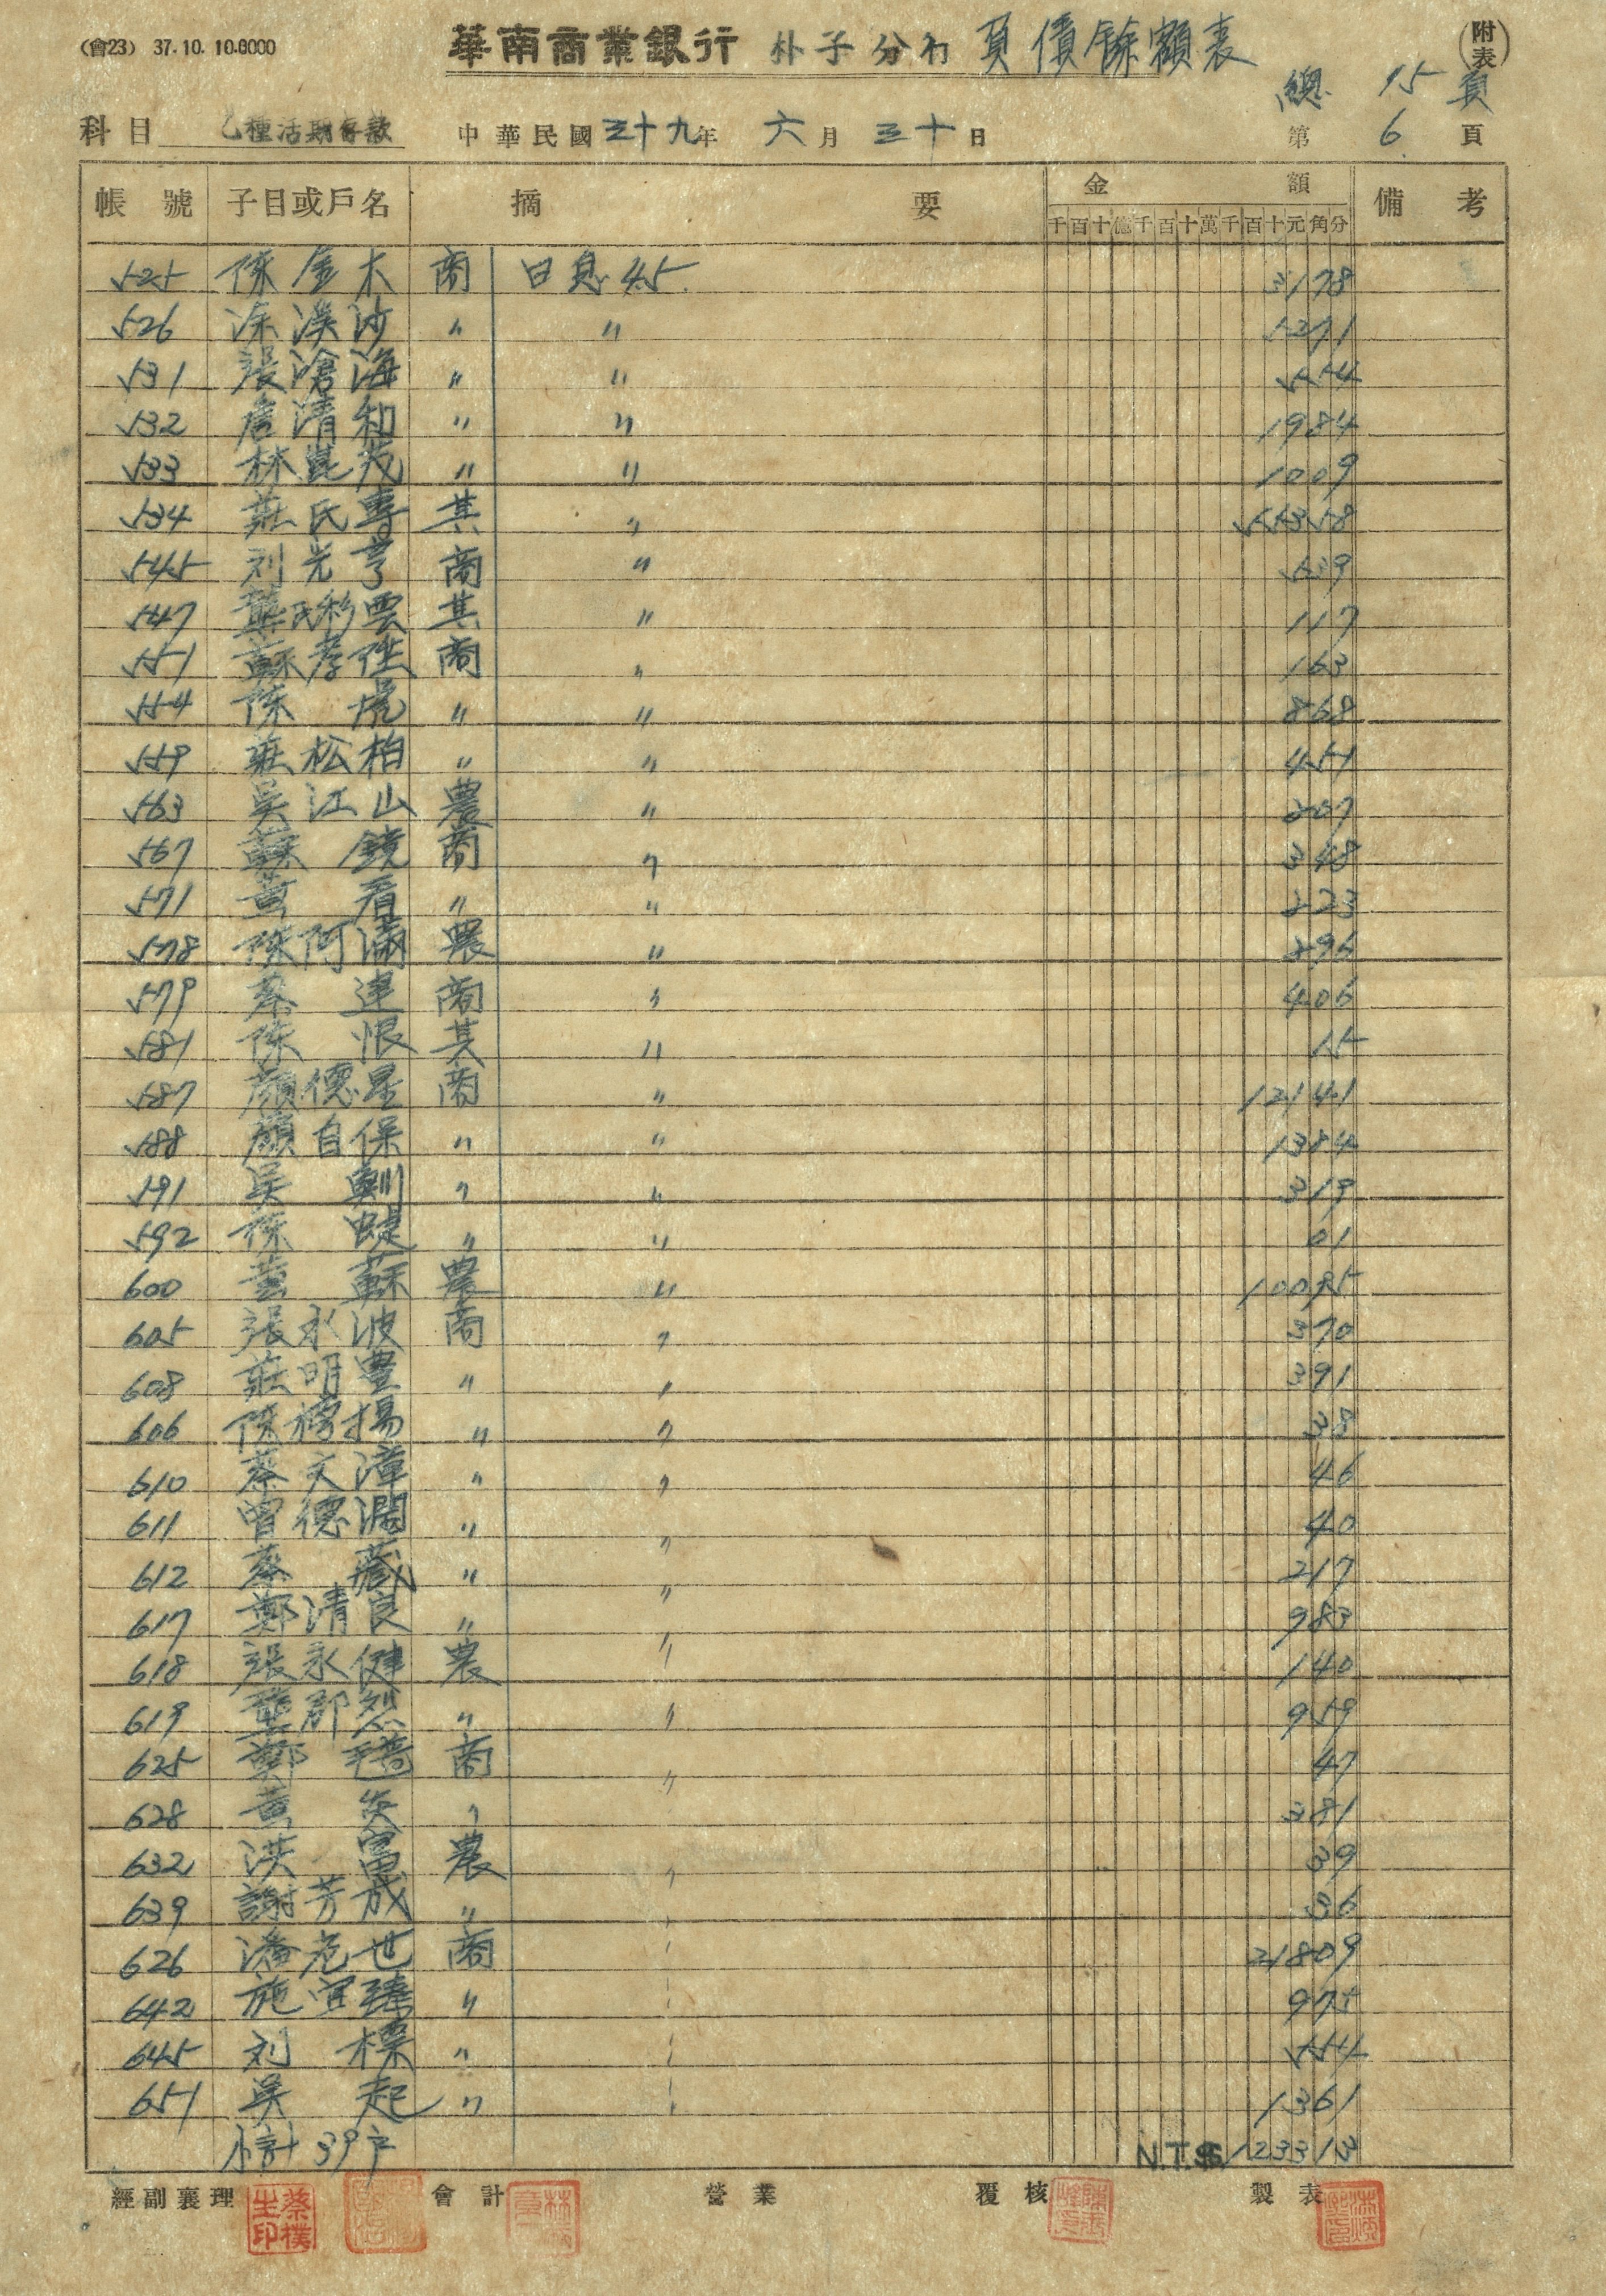 (會23) 37.10.10.6000
華南商業銀行 朴子分行 負債餘額表 (附表)
總 15 頁
科目 乙種活期存款 中華民國三十九年 六月 三十日 第 6 頁
帳號 子目或戶名 摘要 金額 備考
千百十億千百十萬千百十元角分
525 陳金木 商 日息4.5 3178
526 涂漢沙 〃 〃 5271
531 張滄海 〃 〃 554
532 詹清和 〃 〃 1984
533 林崑茂 〃 〃 1009
534 莊氏專 其 〃 55358
545 刘光亨 商 〃 539
547 葉氏彩雲 其 〃 117
551 蘇孝 商 〃 163
554 陳虎 〃 〃 868
559 莊松柏 〃 〃 451
563 吳江山 農 〃 207
567 蘇鏡 商 〃 348
571 黃看 〃 〃 223
578 陳阿滿 農 〃 296
579 蔡連 商 〃 406
581 陳恨 其 〃 15
587 顏德星 商 〃 12141
588 顏自保 〃 〃 1384
591 吳鯯 〃 〃 319
592 陳 〃 〃 01
600 黃蘇 農 〃 10095
605 張永波 商 〃 370
608 莊明豊 〃 〃 391
606 陳揚 〃 〃 38
610 蔡文漳 〃 〃 46
611 曾德濶 〃 〃 40
612 蔡藏 〃 〃 217
617 鄭清良 〃 〃 983
618 張永健 農 〃 140
619 葉郡 〃 〃 959
625 鄭 商 〃 47
628 黃炎 〃 381
632 洪富 農 〃 39
639 謝芳成 〃 〃 36
626 潘危世 商 〃 21809
642 施宜 〃 〃 975
645 刘標 〃 〃 554
651 吳起 〃 〃 1361
小計 39戶 N.T.$ 123313
經副襄理 會計 營業 覆核 製表
蔡樸生印